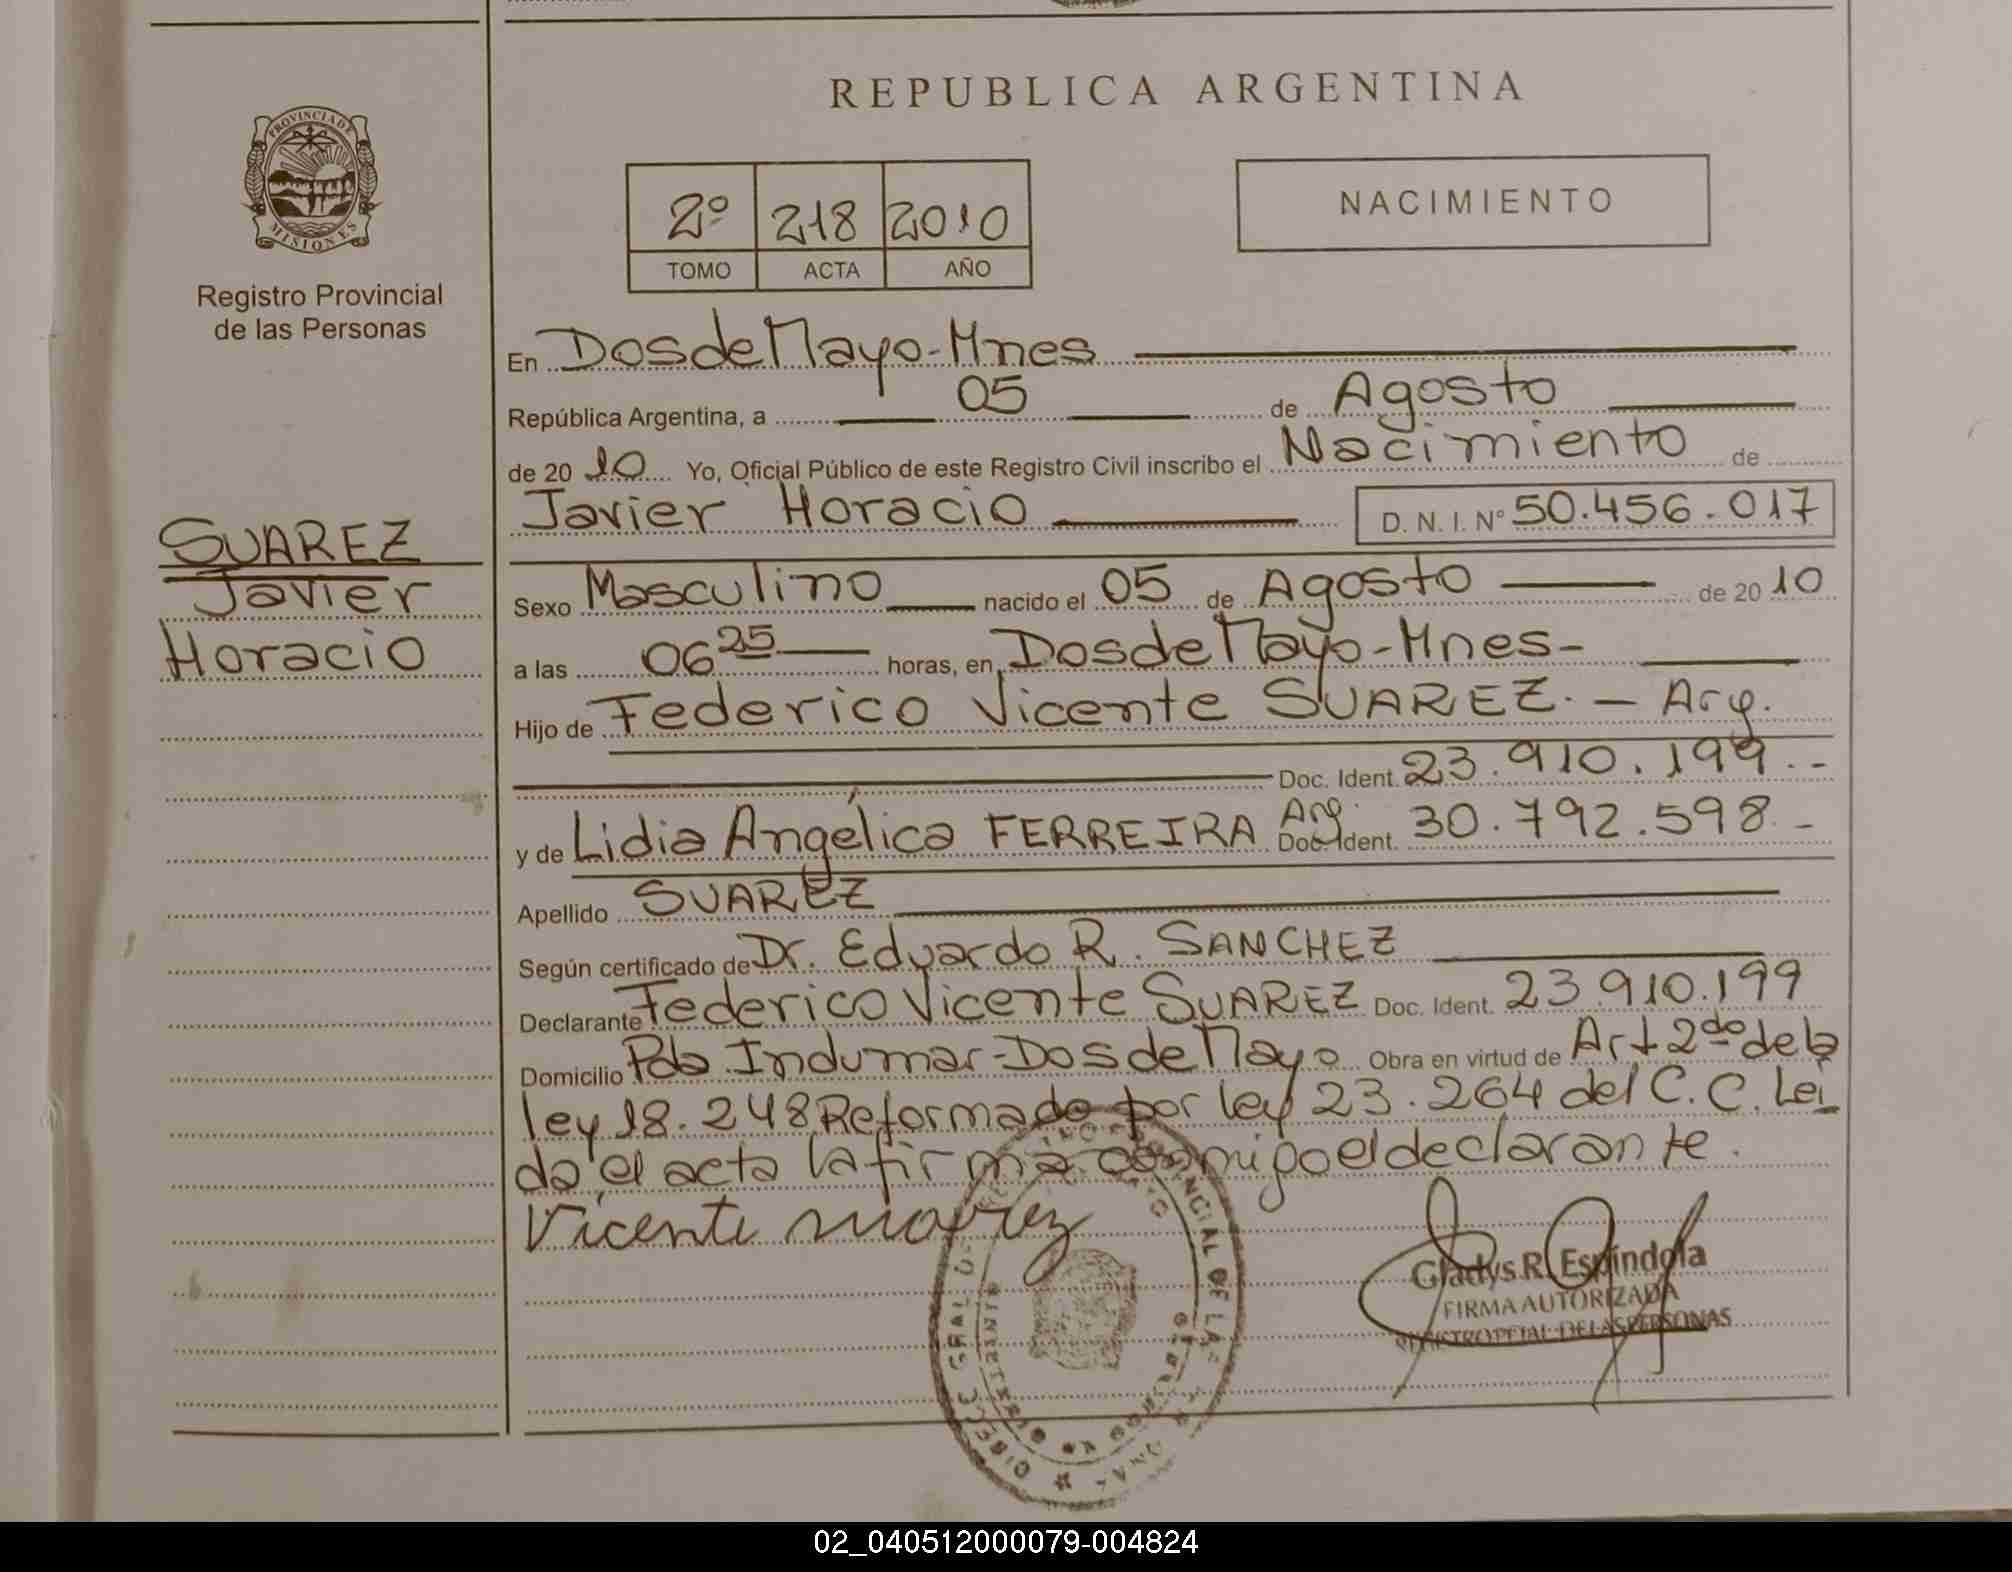 REPUBLICA ARGENTINA
PROVINCIA DE
MISIONES
Registro Provincial
de las Personas
2º 218 2010
TOMO ACTA AÑO
NACIMIENTO
En Dos de Mayo-Mnes
República Argentina, a 05 de Agosto
de 20 10 Yo, Oficial Público de este Registro Civil inscribo el Nacimiento de
Javier Horacio D. N. I. Nº 50.456.017
SUAREZ
Javier
Horacio
Sexo Masculino nacido el 05 de Agosto de 20 10
a las 06 25 horas, en Dos de Mayo-Mnes-
Hijo de Federico Vicente SUAREZ. - Arg.
Doc. Ident. 23.910.199.-
y de Lidia Angélica FERREIRA Arg. Doc. Ident. 30.792.598.-
Apellido SUAREZ
Según certificado de Dr. Eduardo R. SANCHEZ
Declarante Federico Vicente SUAREZ Doc. Ident. 23.910.199
Domicilio Pda Indumar-Dos de Mayo Obra en virtud de Art 2do de la
ley 18.248 Reformado por ley 23.264 del C.C. Leí
da el acta la firma conmigo el declarante.
Vicente suarez
Gladys R. Espíndola
FIRMA AUTORIZADA
REGISTRO PCIAL. DE LAS PERSONAS
02_040512000079-004824